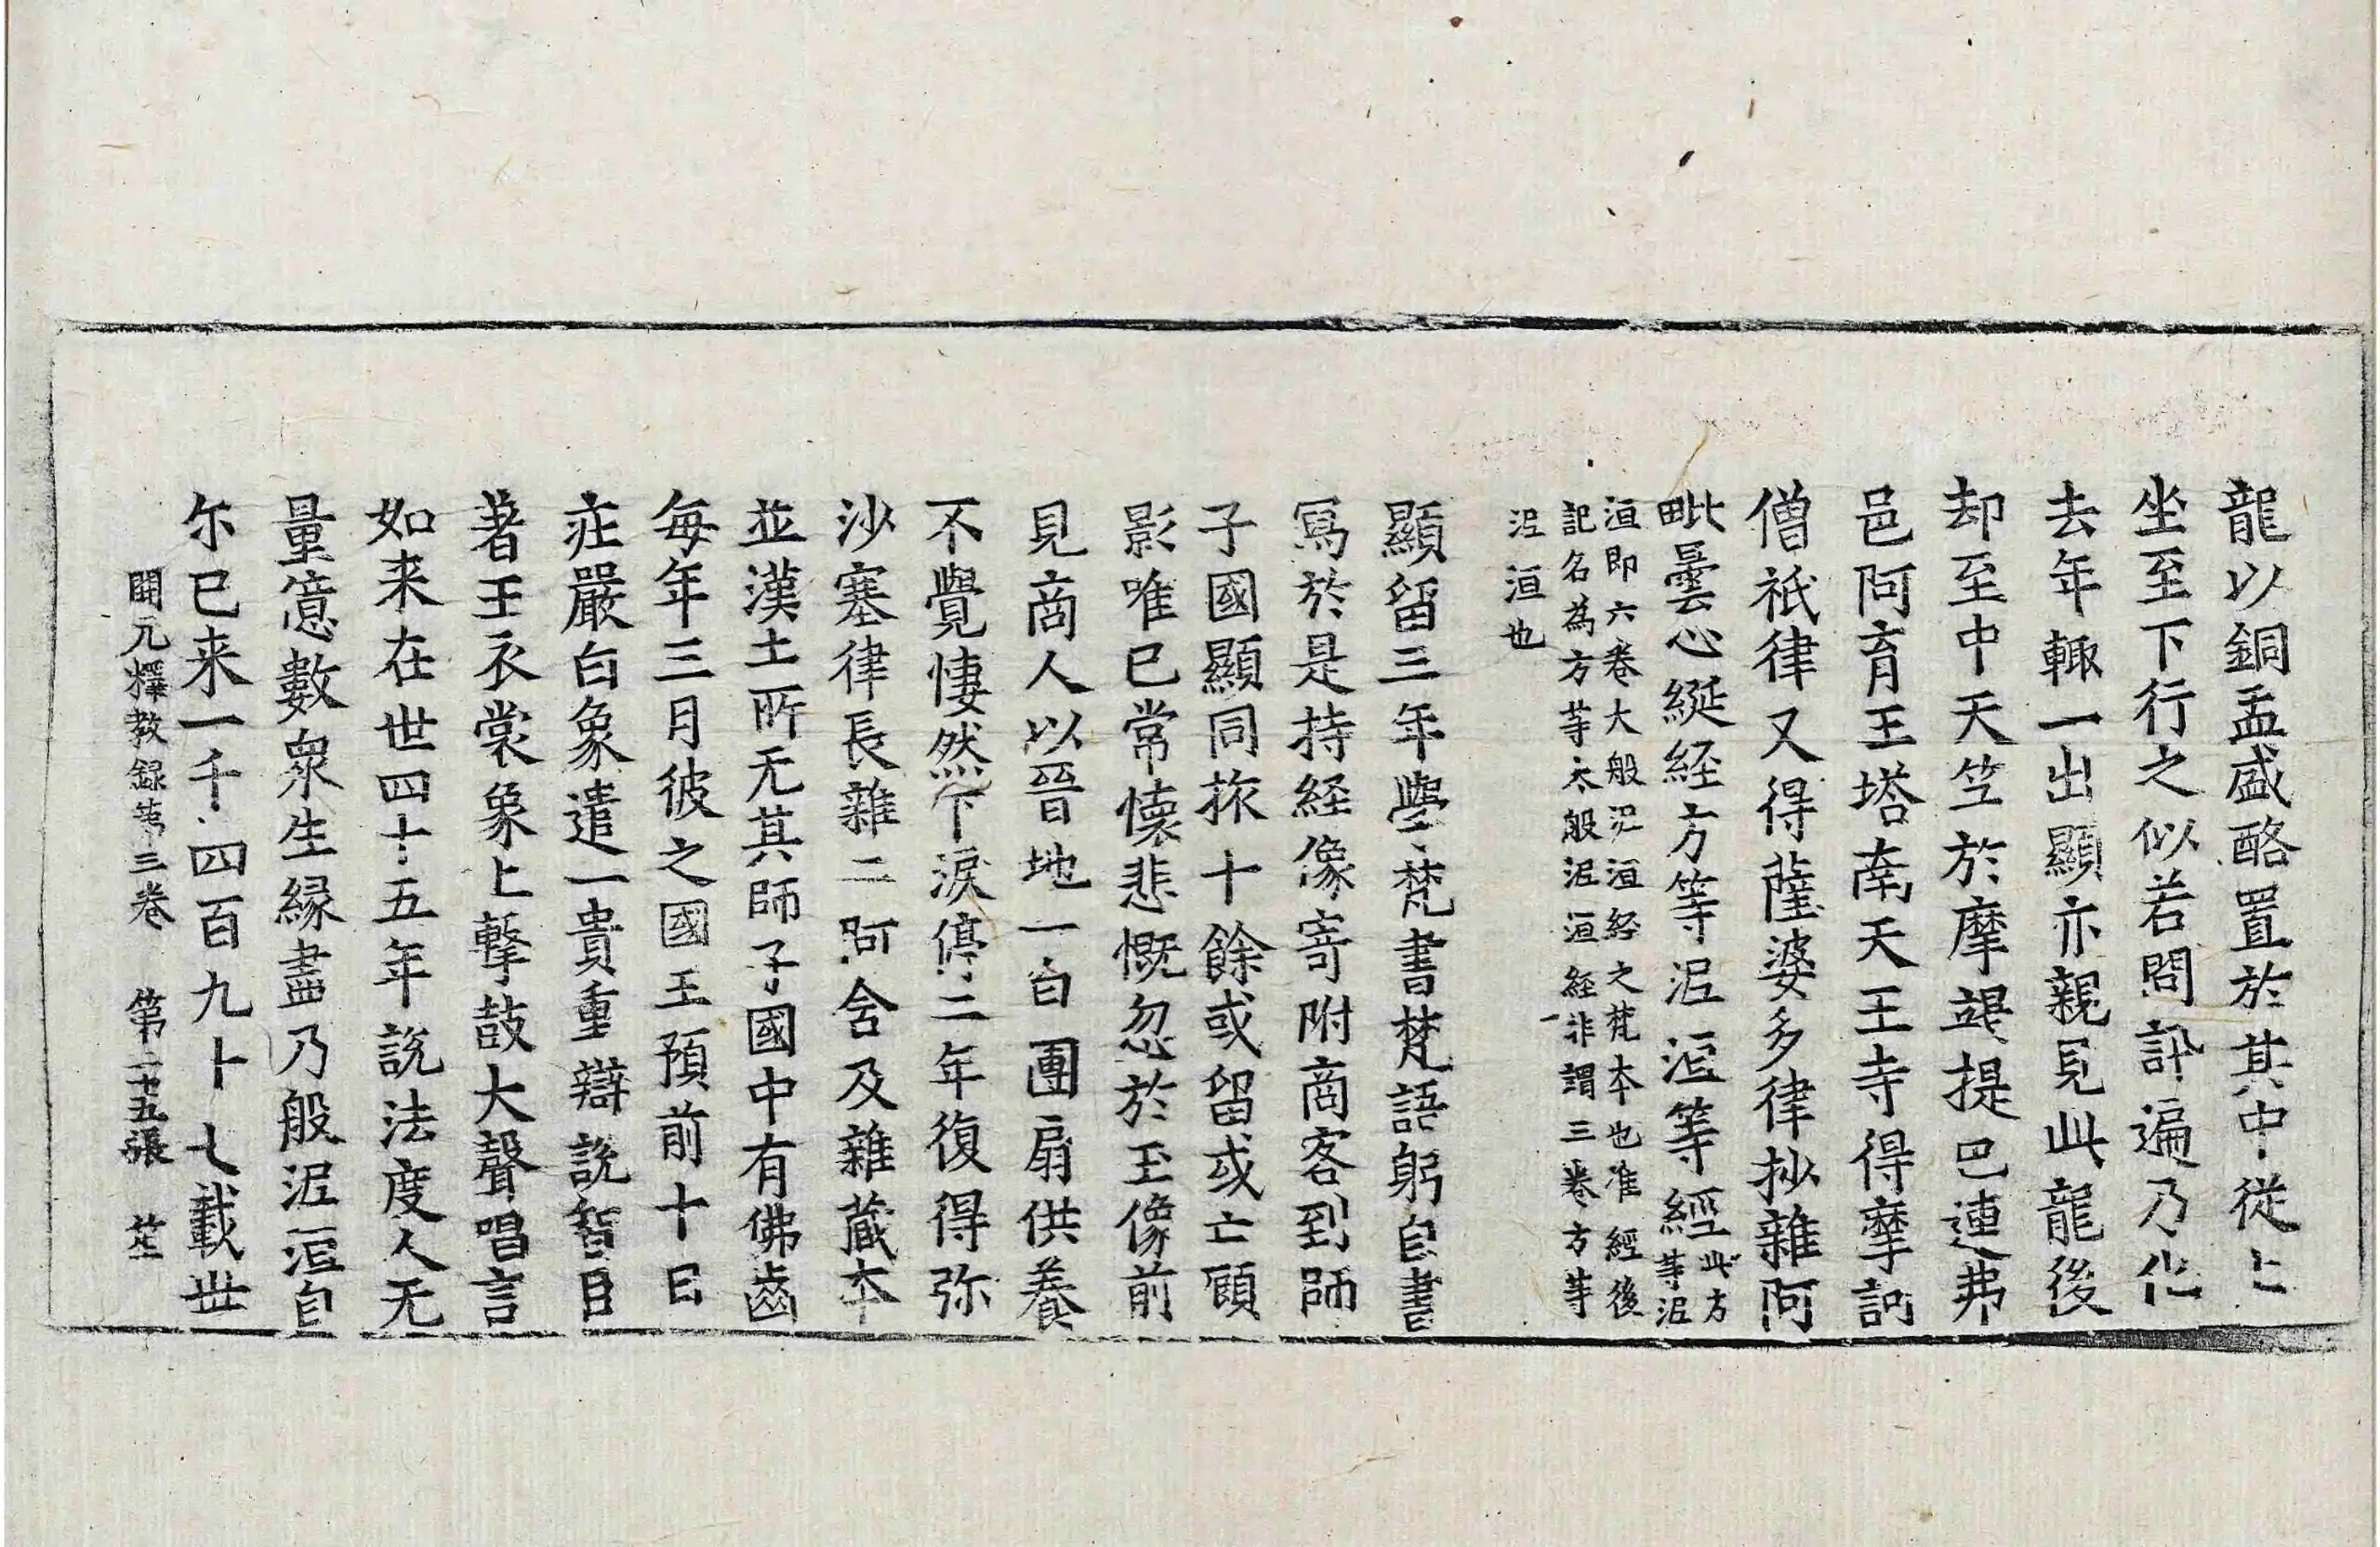 龍以銅盂盛酪置於其中從上
坐至下行之似若問訃遍乃化
去年輙一出顯亦親見此龍後
却至中天竺於摩竭提巴連弗
邑阿育王塔南天王寺得摩訶
僧祇律又得薩婆多律抄雜阿
毗曇心綖経方等泥洹等經此方等泥
洹即六卷大般泥洹経之梵本也准經後
記名為方等大般泥洹経非謂三卷方等
泥洹也
顯留三年學梵書梵語躬自書
寫於是持経像寄附商客到師
子國顯同旅十餘或留或亡顧
影唯已常懷悲慨忽於玉像前
見商人以晉地一白團扇供養
不覺悽然下淚停二年復得弥
沙塞律長雜二阿含及雜藏本
並漢土所无其師子國中有佛齒
每年三月彼之國王預前十日
莊嚴白象遣一貴重辯說智目
著王衣裳象上擊鼓大聲唱言
如来在世四十五年說法度人无
量億數衆生緣盡乃般泥洹自
尓已来一千四百九十七載世
開元釋教録第三卷　第二十五張　茔